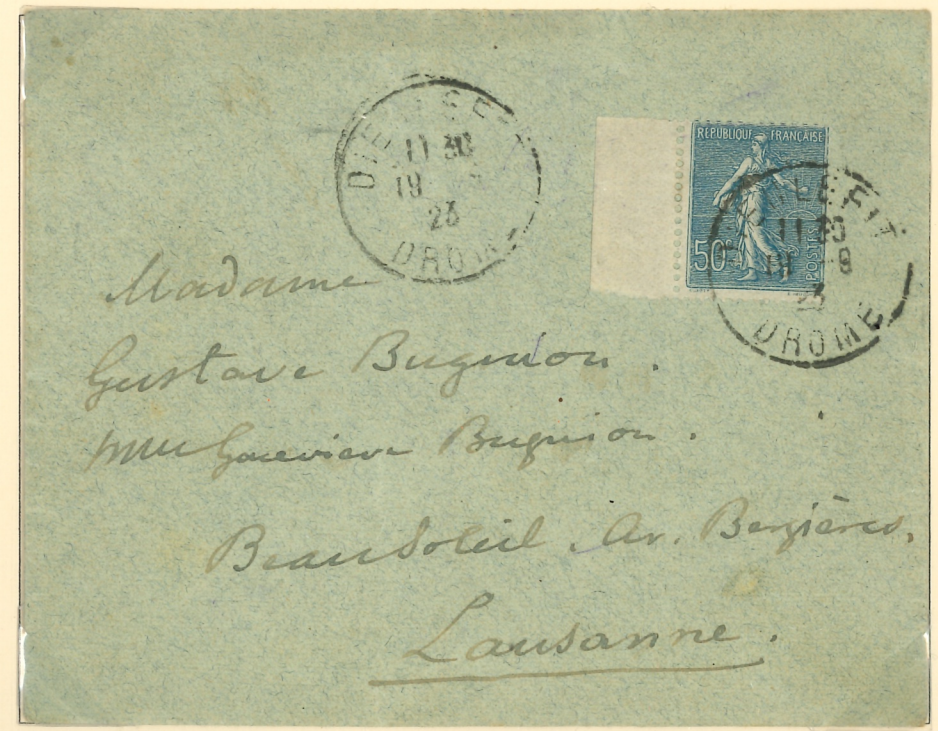 DIE
11 30
19
23
DROME
RÉPUBLIQUE FRANÇAISE
50c
POSTES
LEFIT
11 30
19 - 9
23
DROME
Madame
Gustave Bugnion.
Mlle Geneviève Bugnion.
Beau Soleil. Av. Bergières.
Lausanne.